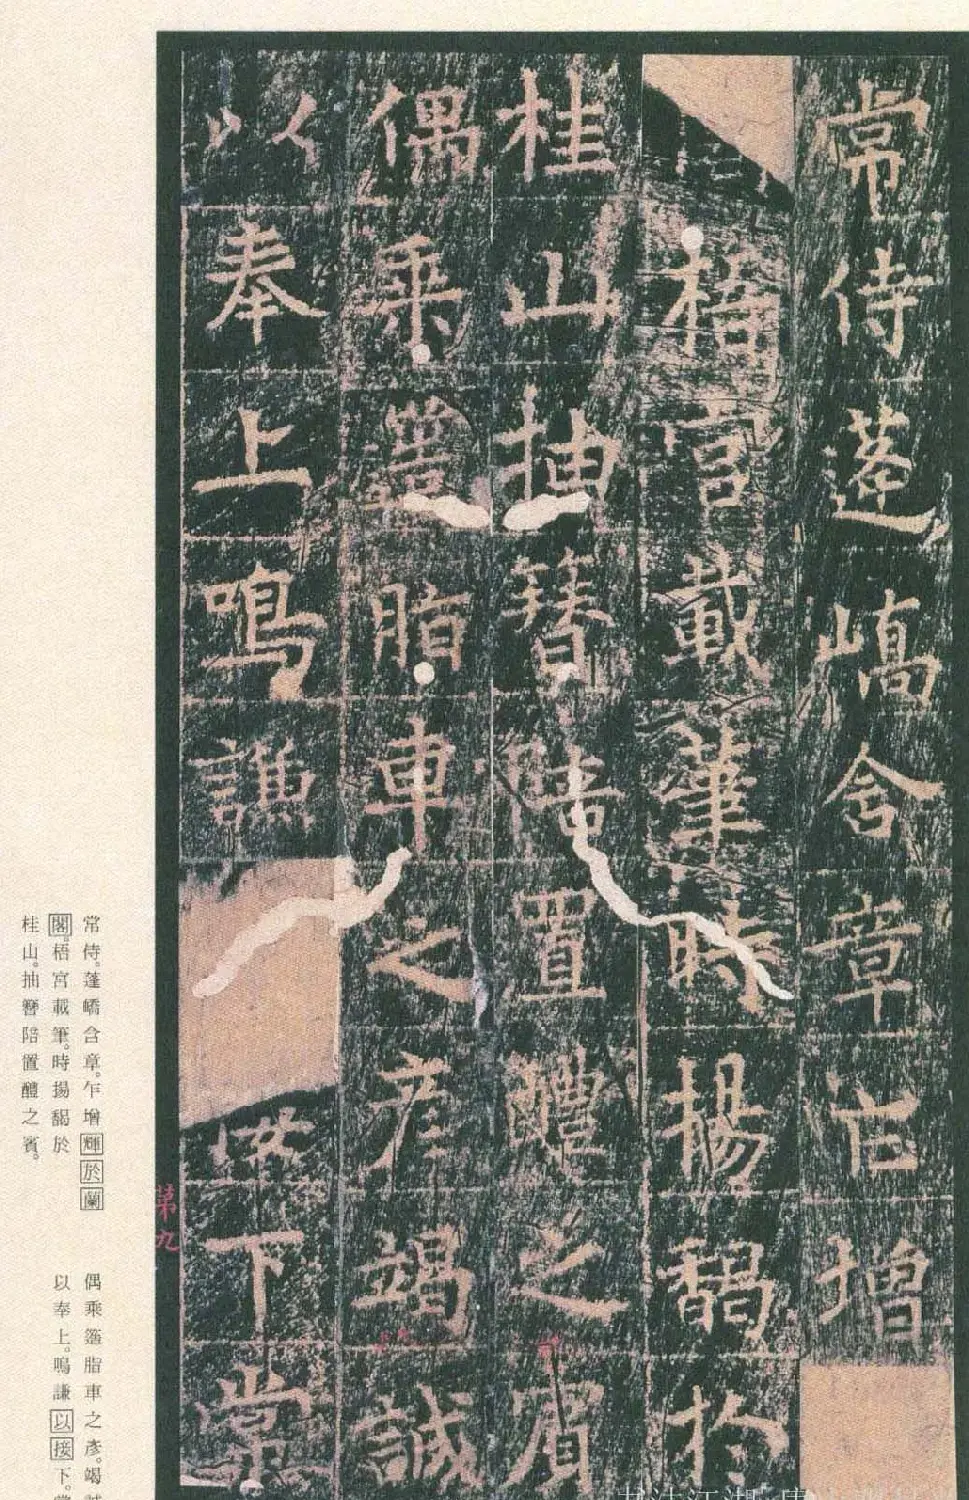 常侍蓬嶠含章乍增
梧宮載筆時揚馤於
桂山抽簪陪置醴之賓
偶乘簦脂車之彥竭誠
以奉上鳴謙
下常
第九
常侍。蓬嶠含章。乍增輝於蘭
閣。梧宮載筆。時揚馤於
桂山。抽簪陪置醴之賓。
偶乘簦脂車之彥。竭誠
以奉上。鳴謙以接下。常